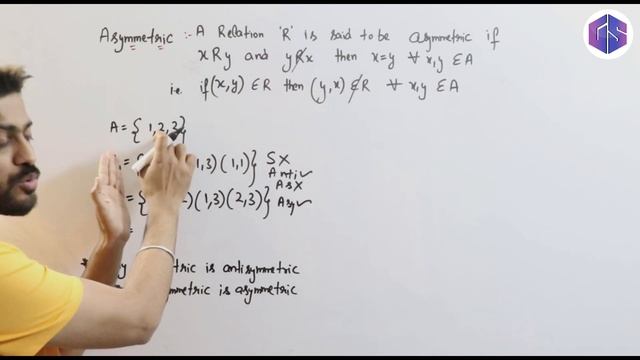 Asymmetric :- A Relation 'R' is said to be asymmetric if
x R y and y R̸ x then x=y ∀ x,y ∈ A
i.e. if (x,y) ∈ R then (y,x) ∉ R ∀ x,y ∈ A
A = { 1,2,3}
= { 1,3) (1,1)} S X
Anti ✓
As X
= { ) (1,3) (2,3)} Asy ✓
=
is antisymmetric
is asymmetric